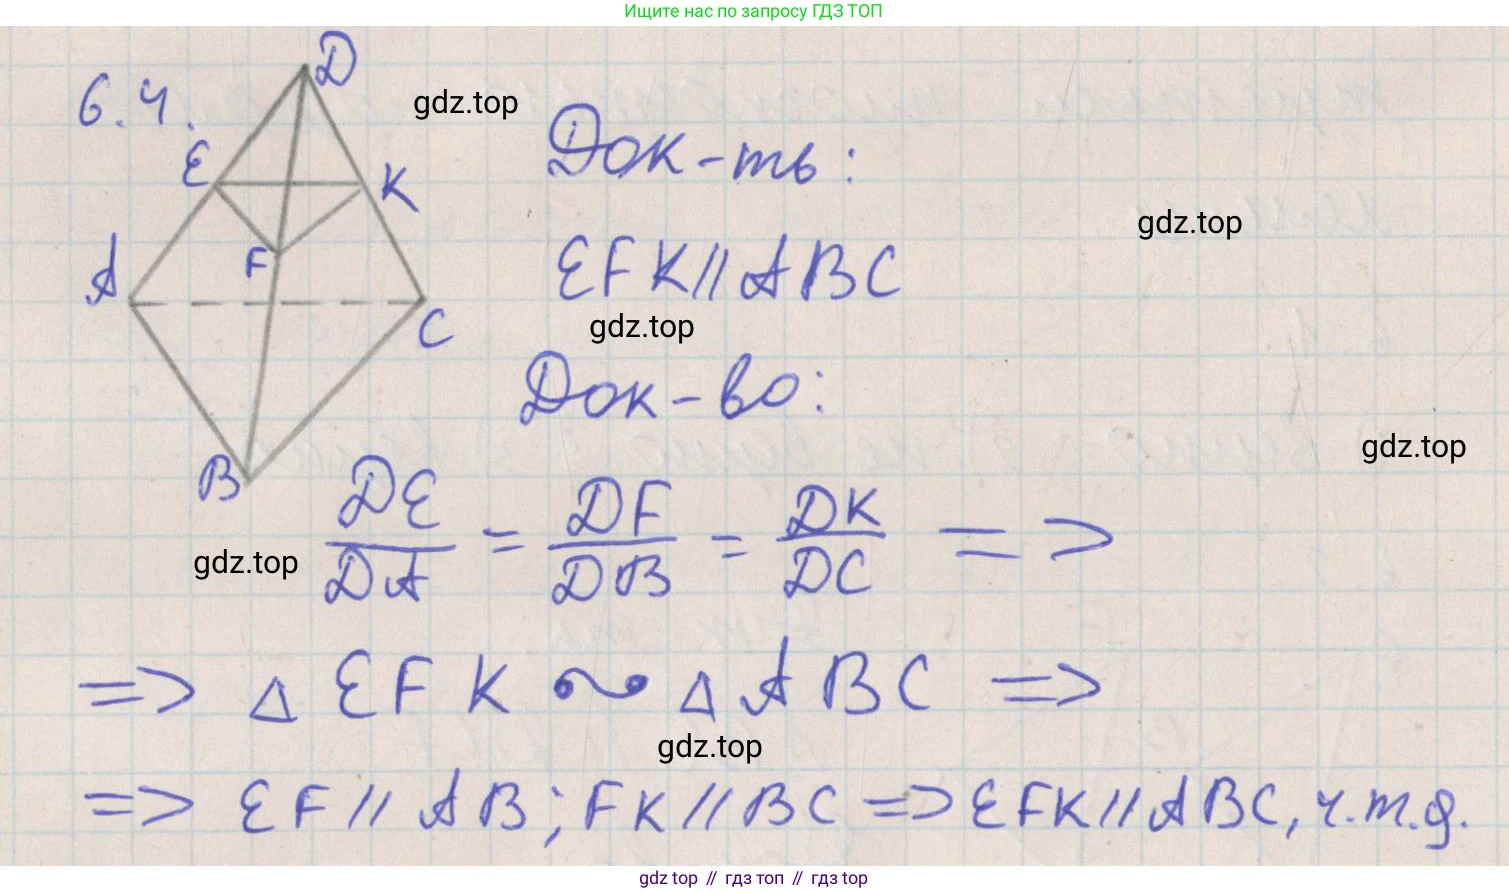 Ищите нас по запросу ГДЗ ТОП
6.4.
D
gdz.top
Док-ть:
E
K
gdz.top
A
F
EFK//ABC
gdz.top
C
Док-во:
gdz.top
B
DE/DA = DF/DB = DK/DC =>
gdz.top
=> △ EFK ∾ △ ABC =>
gdz.top
=> EF // AB; FK // BC => EFK // ABC, ч.т.д.
gdz top // гдз топ // гдз top